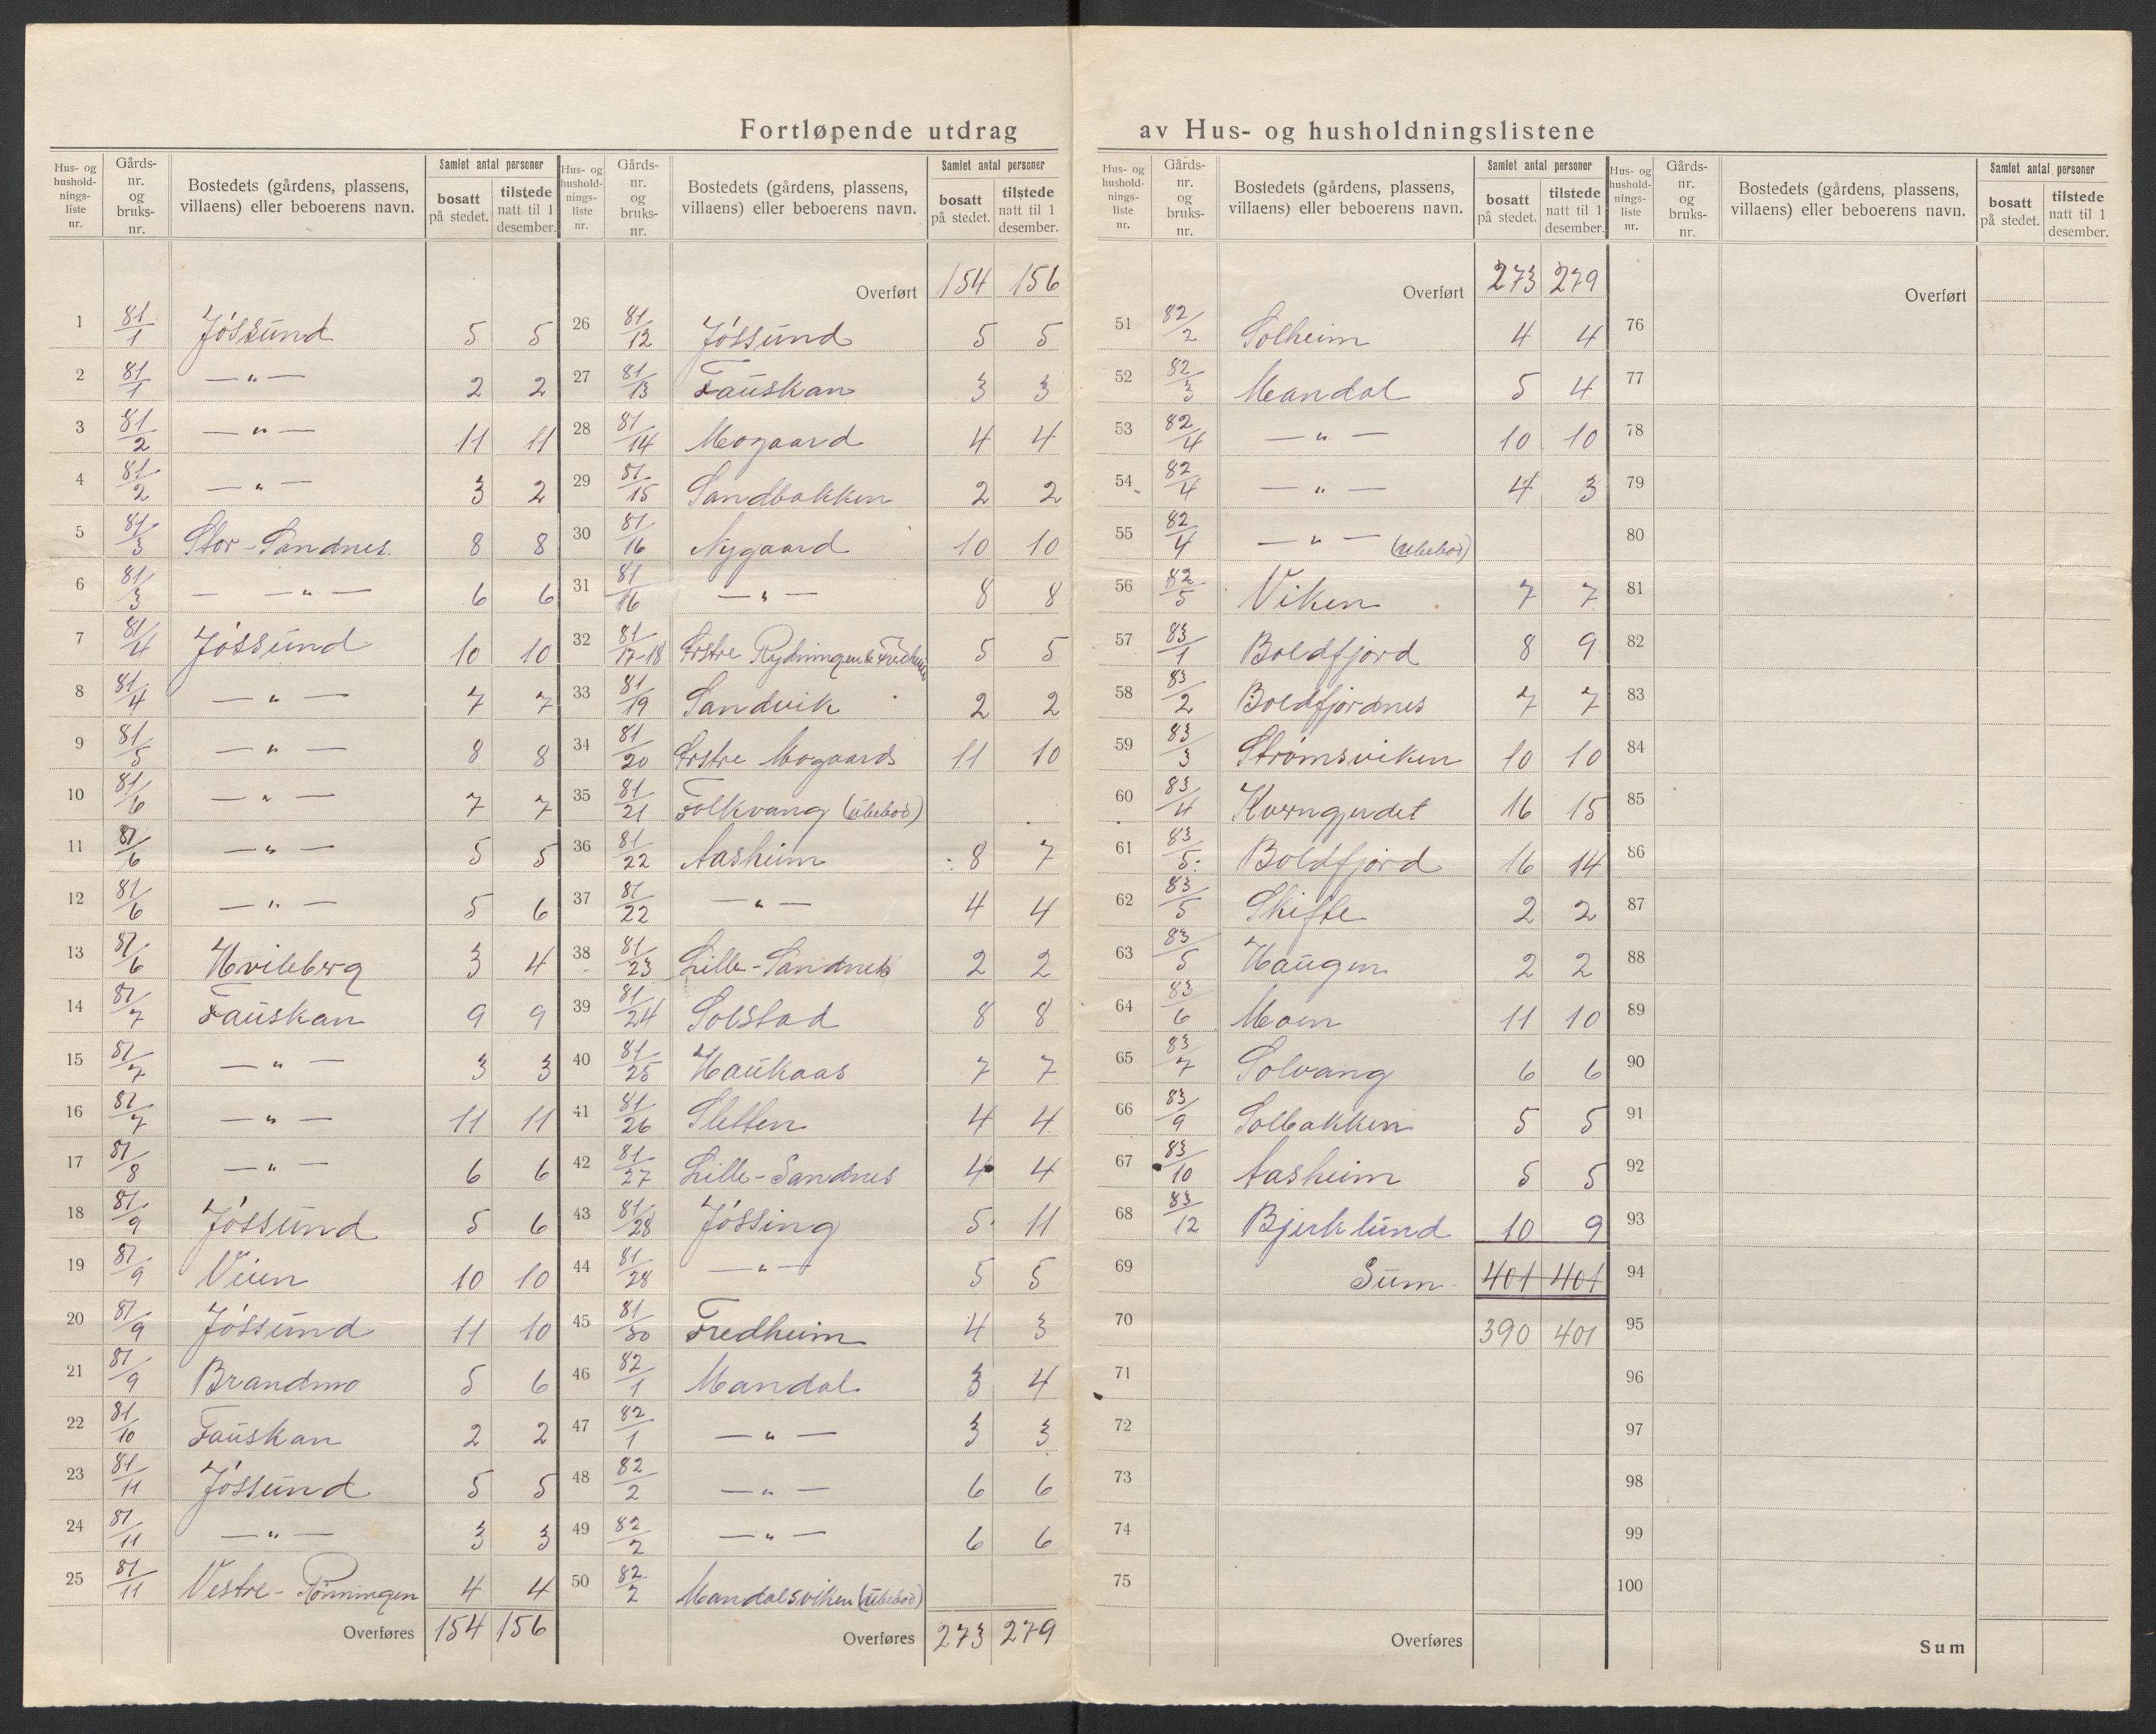 Fortløpende utdrag av Hus- og husholdningslistene
Hus- og husholdnings-liste nr. | Gårds-nr. og bruks-nr. | Bostedets (gårdens, plassens, villaens) eller beboerens navn. | Samlet antal personer bosatt på stedet. | tilstede natt til 1 desember.
1 81/1 Jóssund 5 5
2 81/1 — „ — 2 2
3 81/2 — „ — 11 11
4 81/2 — „ — 3 2
5 81/3 Stor-Sandnes. 8 8
6 81/3 — — „ — 6 6
7 81/4 Jóssund 10 10
8 81/4 — „ — 7 7
9 81/5 — „ — 8 8
10 81/6 — „ — 7 7
11 81/6 — „ — 5 5
12 81/6 — „ — 5 6
13 81/6 Hvileberg 3 4
14 81/7 Fauskan 9 9
15 81/7 — „ — 3 3
16 81/7 — „ — 11 11
17 81/8 — „ — 6 6
18 81/9 Jóssund 5 6
19 81/9 Veien 10 10
20 81/9 Jóssund 11 10
21 81/9 Brandmo 5 6
22 81/10 Fauskan 2 2
23 81/11 Jóssund 5 5
24 81/11 — „ — 3 3
25 81/11 Vestre-Rónningen 4 4
Overføres 154 156
Hus- og husholdnings-liste nr. | Gårds-nr. og bruks-nr. | Bostedets (gårdens, plassens, villaens) eller beboerens navn. | Samlet antal personer bosatt på stedet. | tilstede natt til 1 desember.
Overført 154 156
26 81/12 Jóssund 5 5
27 81/13 Fauskan 3 3
28 81/14 Mogaard 4 4
29 81/15 Sandbakken 2 2
30 81/16 Nygaard 10 10
31 81/16 — „ — 8 8
32 81/17-18 Rydningen & 5 5
33 81/19 Sandvik 2 2
34 81/20 Mogaard 11 10
35 81/21 Folkvang (ubebod)
36 81/22 Aasheim 8 7
37 81/22 — „ — 4 4
38 81/23 Lille-Sandnes 2 2
39 81/24 Solstad 8 8
40 81/25 Haukaas 7 7
41 81/26 Sletten 4 4
42 81/27 Lille-Sandnes 4 4
43 81/28 Jóssing 5 11
44 81/28 — „ — 5 5
45 81/30 Fredheim 4 3
46 82/1 Mandal 3 4
47 82/1 — „ — 3 3
48 82/2 — „ — 6 6
49 82/2 — „ — 6 6
50 82/2 Mandalsviken (Ubebod)
Overføres 273 279
Hus- og husholdnings-liste nr. | Gårds-nr. og bruks-nr. | Bostedets (gårdens, plassens, villaens) eller beboerens navn. | Samlet antal personer bosatt på stedet. | tilstede natt til 1 desember.
Overført 273 279
51 82/2 Solheim 4 4
52 82/3 Mandal 5 4
53 82/4 — „ — 10 10
54 82/4 — „ — 4 3
55 82/4 — „ — (Ubebod)
56 82/5 Viken 7 7
57 83/1 Boldfjord 8 9
58 83/2 Boldfjordnes 7 7
59 83/3 Strómsviken 10 10
60 83/4 Kverngjerdet 16 15
61 83/5 Boldfjord 16 14
62 83/5 Skifte 2 2
63 83/5 Haugen 2 2
64 83/6 Moen 11 10
65 83/7 Solvang 6 6
66 83/9 Solbakken 5 5
67 83/10 Aasheim 5 5
68 83/12 Bjerklund 10 9
69 Sum 401 401
70 390 401
71
72
73
74
75
Overføres
Hus- og husholdnings-liste nr. | Gårds-nr. og bruks-nr. | Bostedets (gårdens, plassens, villaens) eller beboerens navn. | Samlet antal personer bosatt på stedet. | tilstede natt til 1 desember.
Overført
76
77
78
79
80
81
82
83
84
85
86
87
88
89
90
91
92
93
94
95
96
97
98
99
100
Sum